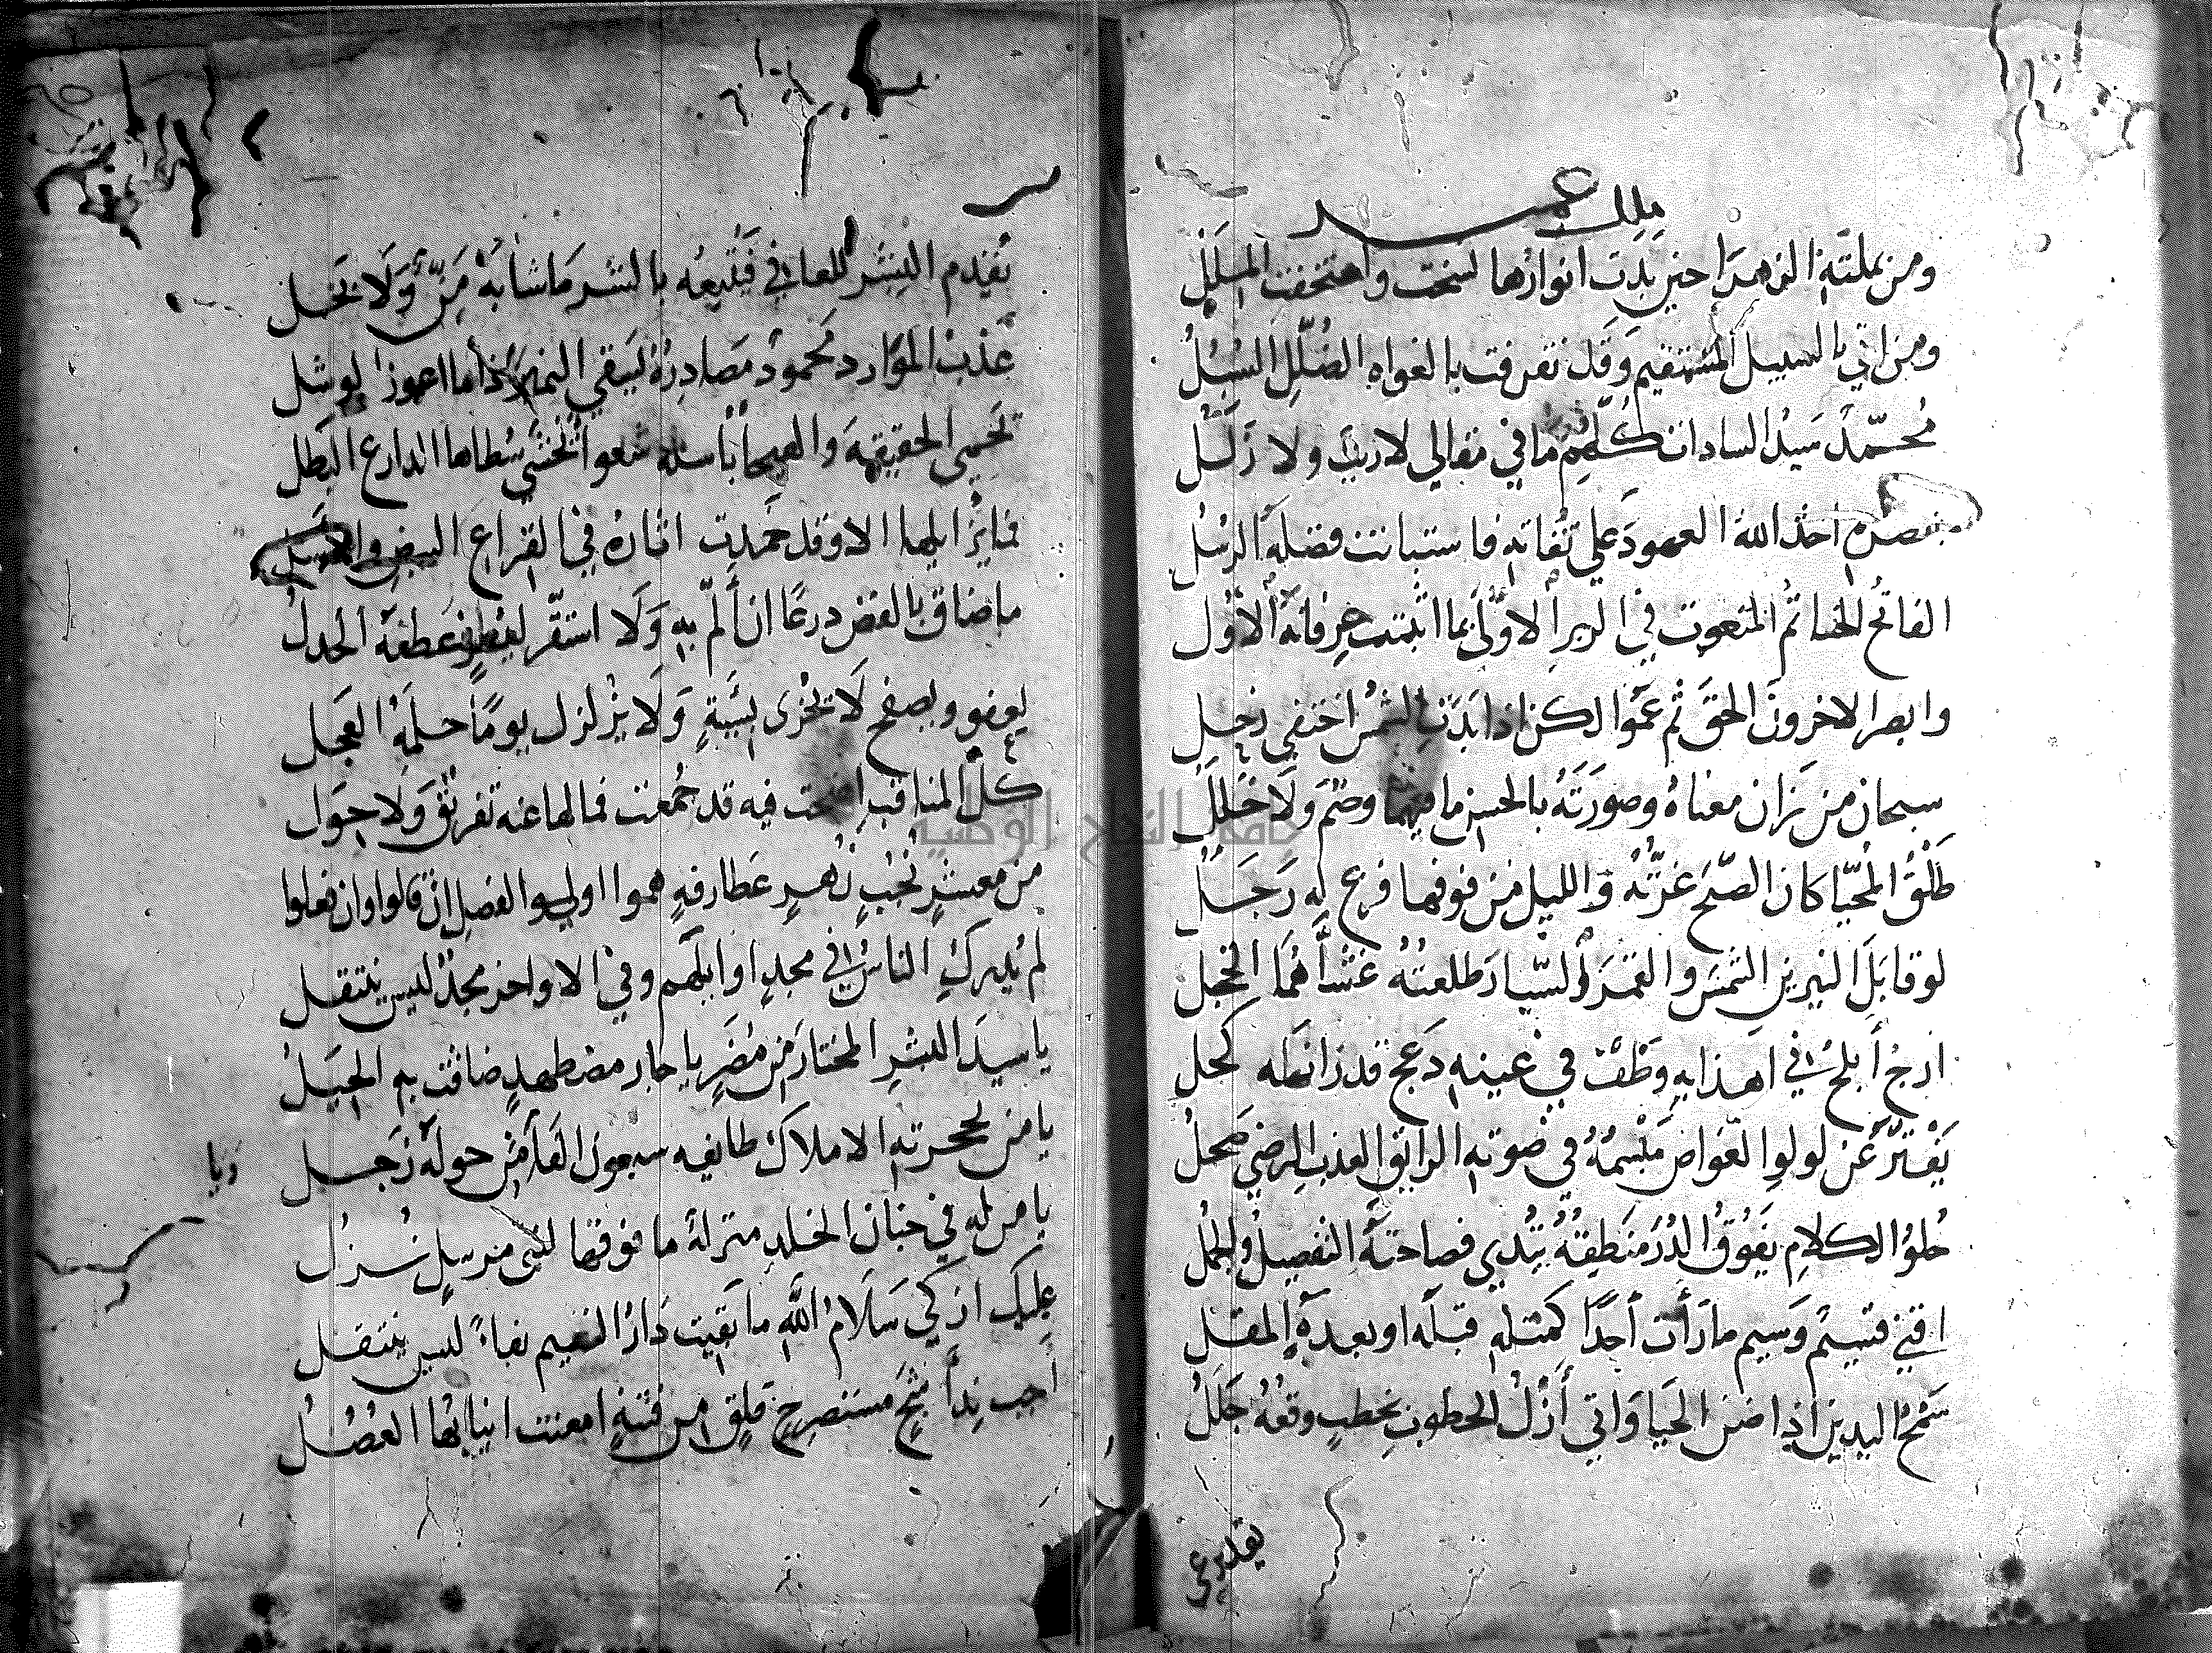 ملك عبد
ومن بملته الزهرا حين بدت انوارها نسخت واختفت الملل
ومن اتي بالسبيل المستقيم وقد تفرقت بالغواه الضلل السبل
محمد سيد السادات كلهم ما في مقالي لا ريب ولا زلل
بنصره اخذ الله العهود علي تقاته فاستبانت فضله الرسل
الفاتح الخاتم المنعوت في الزبر الاولي بما اثبتت عرفانه الاول
وابصر الاخرون الحق ثم عموا لكن اذا بدت الشمس اختفي زحل
سبحان من زان معناه وصورته بالحسن ما فيهما وصم ولا خلل
طلق المحيا كان الصبح غرته والليل من فوقها فرع له رجل
لو قابل النيرين الشمس والقمر السيار طلعته غشاهما الخجل
ازج ابلج في اهدابه وطف في عينه دعج قد زانها كحل
يفتر عن لولو الغواص مبسمه في صوته الرايق العذب الرضي صحل
حلو الكلام يفوق الدر منطقه تبدي فصاحته التفصيل والجمل
اقني قسيم وسيم ما رأت أحدا كمثله قبله او بعده المقل
سمح اليدين اذا ضن الحيا واتي أزل الخطوب بخطب وقعه جلل
يقدم البشر للعافي فيتبعه بالنشر ما شابه من ولا بخل
عذب الموارد محمود مصادره يسقي النمير اذا ما اعوز الوشل
يحمي الحقيقة والهيجا باسلة شعوا يخشي سطاها الدارع البطل
اثاره في القراع البيض والاسل
ما ضاق بالفض درعا ان ألم به ولا استقر عطفه الجدل
يعفو ويصفح لا يجزى بسيئة ولا يزلزل يوما حلمه العجل
كل المناقب اضحت فيه قد جمعت فما لها عنه تفريق ولا حول
من معشر نجب زهر غطارفة هموا اولوا الفضل ان قالوا وان فعلوا
لم يدرك الناس في مجد اوايلهم وفي الاواخر مجد ليس ينتقل
يا سيد البشر المختار من مضر يا جار مضطهد ضاقت به الحيل
يا من بحجرته الاملاك طايفه سبعون الفا من حوله زجل
يا من له في جنان الخلد منزلة ما فوقها لنبي مرسل نزل
عليك ازكي سلام الله ما بقيت دار النعيم بقاء ليس ينتقل
أجب ندا شج مستصرخ قلق من فتنة امعنت انيابها العضل